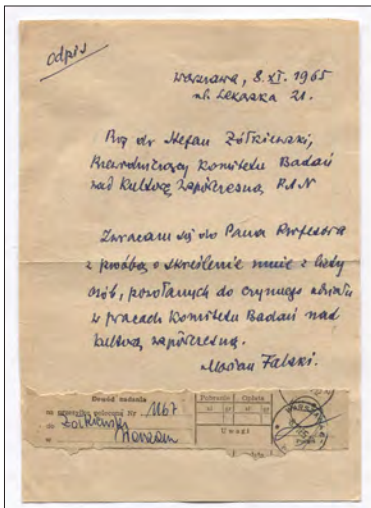 odpis
Warszawa, 8.XI. 1965
ul. Lekarska 21.
Prof dr Stefan Żółkiewski,
Przewodniczący Komitetu Badań
nad Kulturą Współczesną PAN
Zwracam się do Pana Profesora
z prośbą o skreślenie mnie z listy
osób, powołanych do czynnego udziału
w pracach Komitetu Badań nad
kulturą współczesną.
Marian Falski.
Dowód nadania
na przesyłkę poleconą Nr 1167
do Żółkiewski
w Warszawa
Pobranie Opłata
zł gr zł gr
Uwagi
WARSZAWA